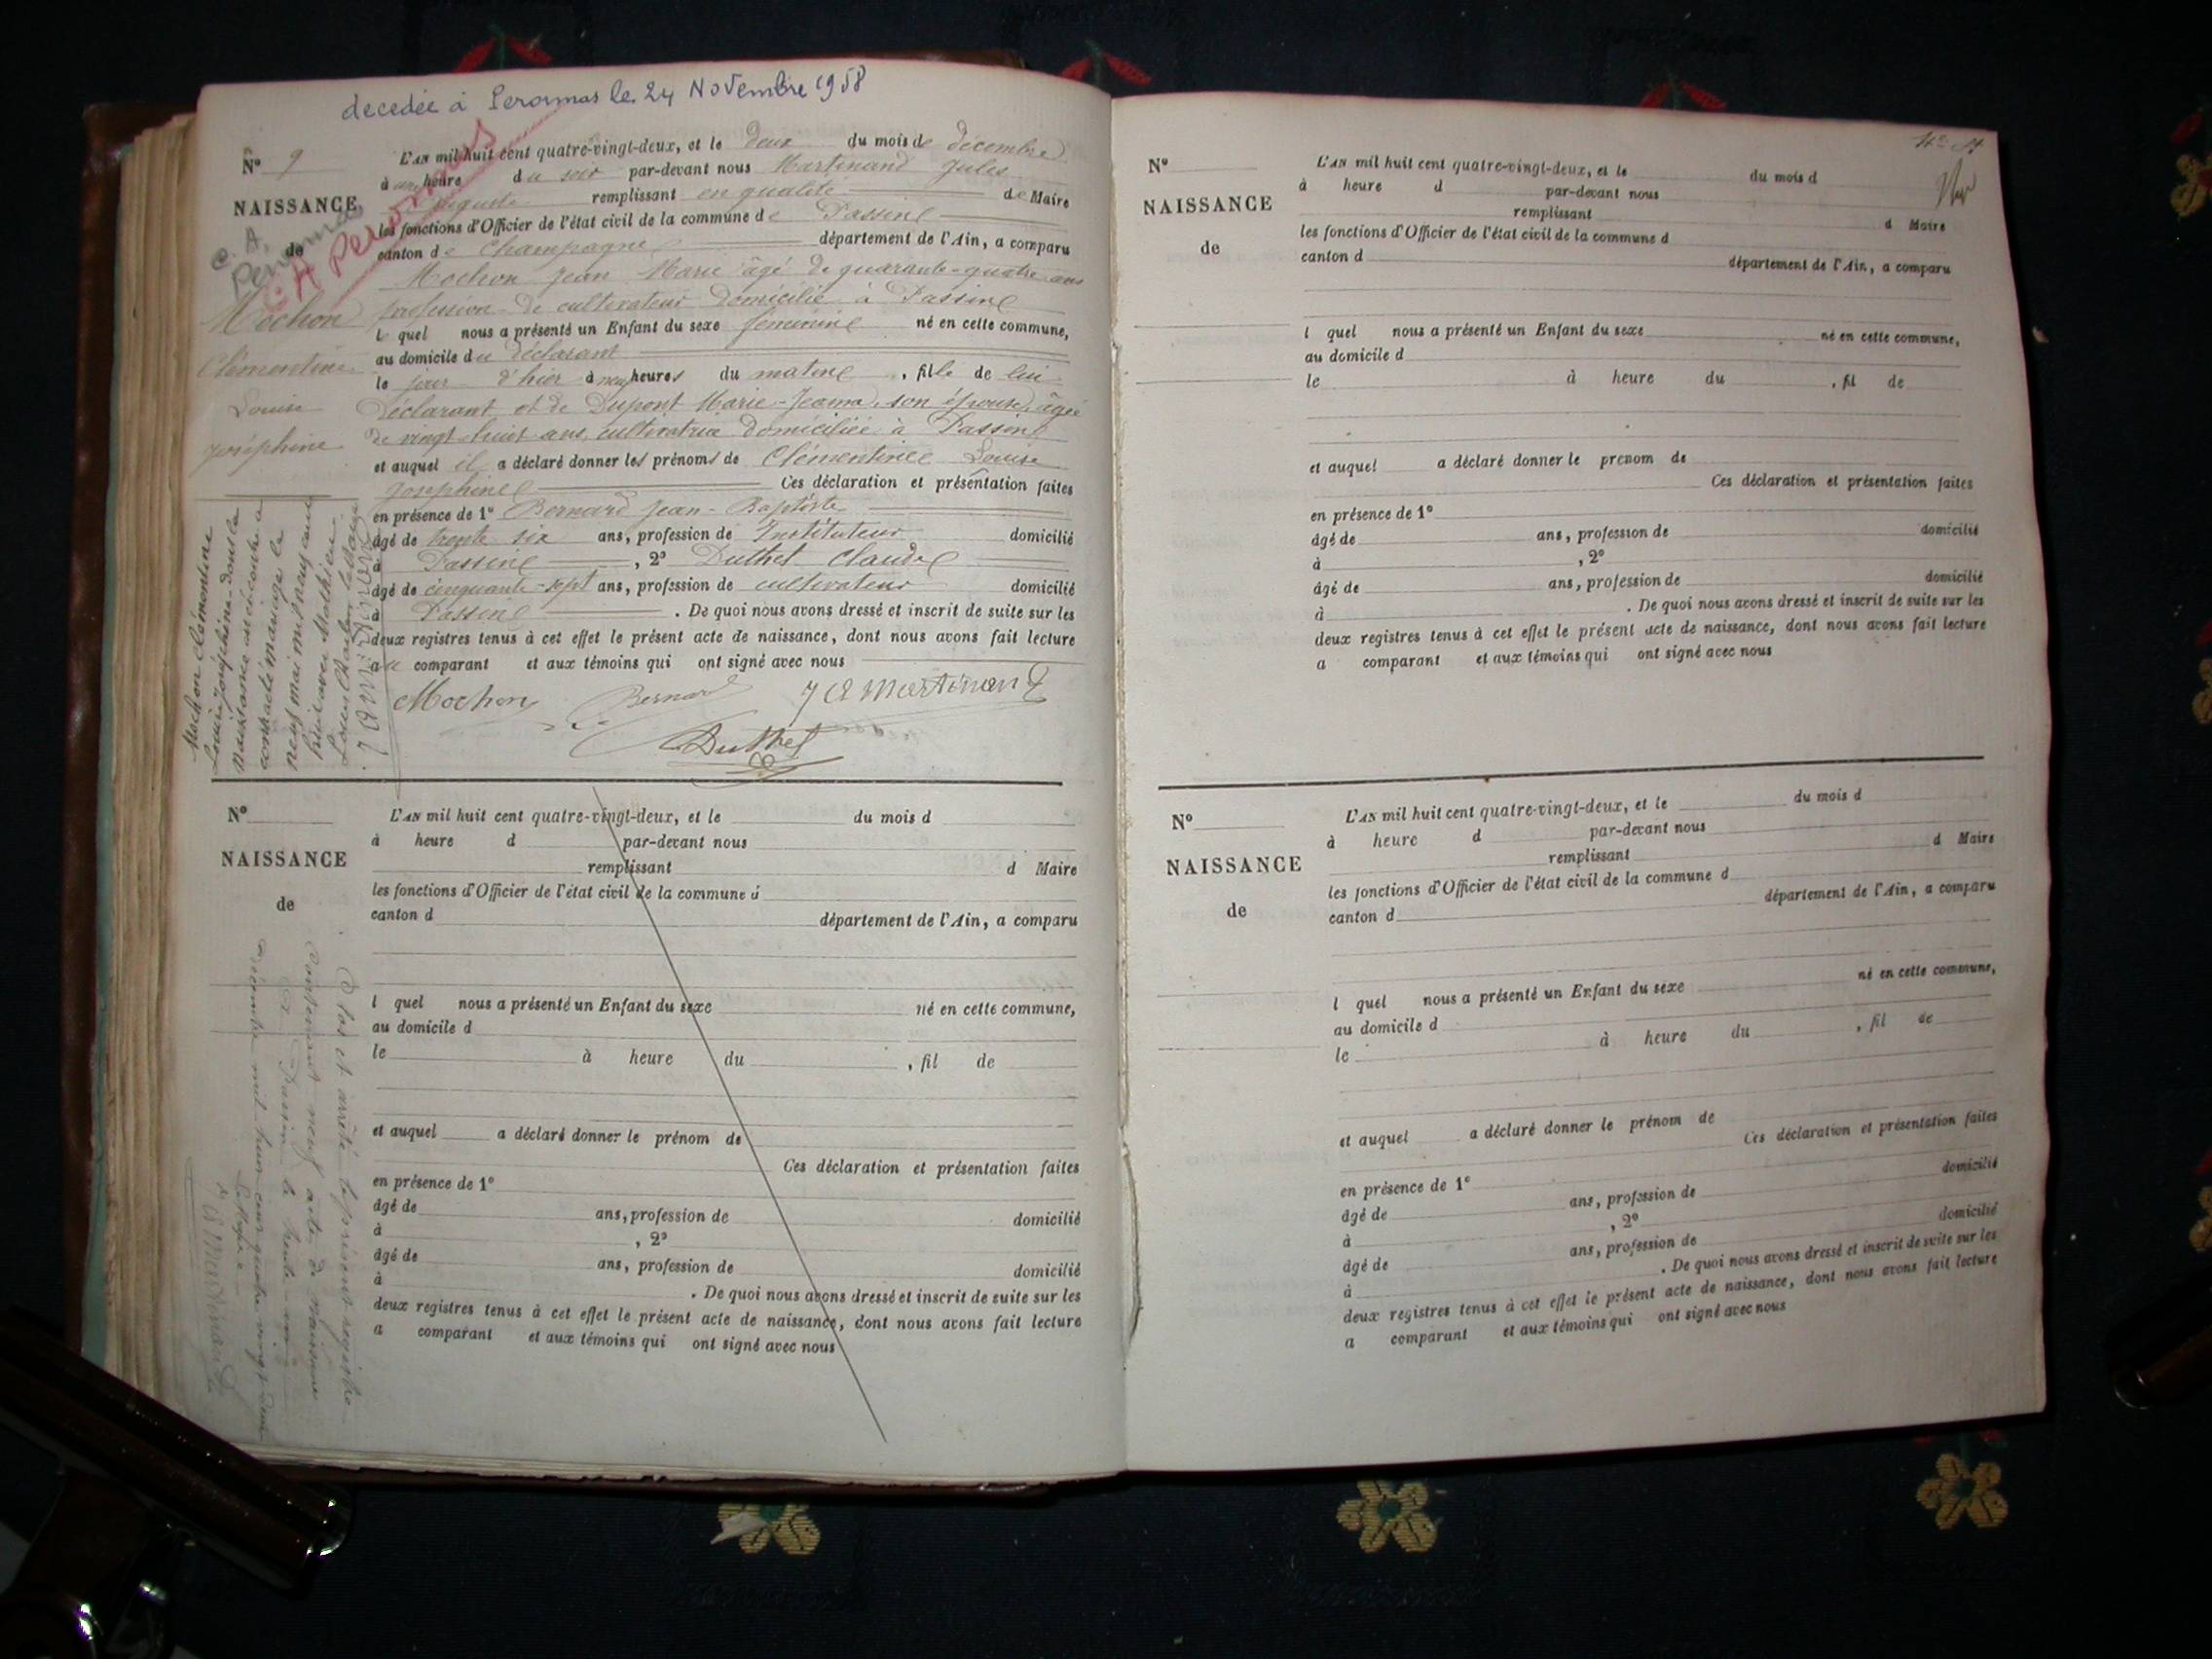 decedée à Peronnas le 24 Novembre 1958
N° 9
NAISSANCE
de
C. A.
Peronnas
A Peronnas
Mochon
Clémentine
Louise
Joséphine
L'AN mil huit cent quatre-vingt-deux, et le deux du mois de décembre
à une heure du soir par-devant nous Martinand Jules
remplissant en qualité de Maire
les fonctions d'Officier de l'état civil de la commune de Passin
canton de Champagne département de l'Ain, a comparu
Mochon Jean Marie âgé de quarante-quatre ans
profession de cultivateur domicilié à Passin
le quel nous a présenté un Enfant du sexe féminin né en cette commune,
au domicile du déclarant
le jour d'hier à neuf heures du matin, fille de lui
déclarant et de Dupont Marie-Jeanne, son épouse, âgée
de vingt-huit ans, cultivatrice domiciliée à Passin
et auquel il a déclaré donner les prénoms de Clémentine Louise
Joséphine Ces déclaration et présentation faites
en présence de 1° Bernard Jean-Baptiste
âgé de trente six ans, profession de Instituteur domicilié
à Passin, 2° Duthel Claude
âgé de cinquante-sept ans, profession de cultivateur domicilié
à Passin. De quoi nous avons dressé et inscrit de suite sur les
deux registres tenus à cet effet le présent acte de naissance, dont nous avons fait lecture
au comparant et aux témoins qui ont signé avec nous
Mochon Bernard J A Martinand
Duthel
Mochon Clémentine
Louise Joséphine dont la
naissance est ci-contre a
contracté mariage le
neuf mai mil neuf cent
N°
NAISSANCE
de
L'AN mil huit cent quatre-vingt-deux, et le du mois d
à heure d par-devant nous
remplissant d Maire
les fonctions d'Officier de l'état civil de la commune d
canton d département de l'Ain, a comparu
l quel nous a présenté un Enfant du sexe né en cette commune,
au domicile d
le à heure du , fil de
et auquel a déclaré donner le prénom de
Ces déclaration et présentation faites
en présence de 1°
âgé de ans, profession de domicilié
à , 2°
âgé de ans, profession de domicilié
à . De quoi nous avons dressé et inscrit de suite sur les
deux registres tenus à cet effet le présent acte de naissance, dont nous avons fait lecture
a comparant et aux témoins qui ont signé avec nous
Clos et arrêté le présent registre
contenant neuf actes de naissance
à Passin le trente-un
décembre mil huit cent quatre-vingt-deux
Le Maire
J A Martinand
N°
NAISSANCE
de
L'AN mil huit cent quatre-vingt-deux, et le du mois d
à heure d par-devant nous
remplissant d Maire
les fonctions d'Officier de l'état civil de la commune d
canton d département de l'Ain, a comparu
l quel nous a présenté un Enfant du sexe né en cette commune,
au domicile d
le à heure du , fil de
et auquel a déclaré donner le prenom de
Ces déclaration et présentation faites
en présence de 1°
âgé de ans, profession de domicilié
à , 2°
âgé de ans, profession de domicilié
à . De quoi nous avons dressé et inscrit de suite sur les
deux registres tenus à cet effet le présent acte de naissance, dont nous avons fait lecture
a comparant et aux témoins qui ont signé avec nous
N°
NAISSANCE
de
L'AN mil huit cent quatre-vingt-deux, et le du mois d
à heure d par-devant nous
remplissant d Maire
les fonctions d'Officier de l'état civil de la commune d
canton d département de l'Ain, a comparu
l quel nous a présenté un Enfant du sexe né en cette commune,
au domicile d
le à heure du , fil de
et auquel a déclaré donner le prénom de
Ces déclaration et présentation faites
en présence de 1°
âgé de ans, profession de domicilié
à , 2°
âgé de ans, profession de domicilié
à . De quoi nous avons dressé et inscrit de suite sur les
deux registres tenus à cet effet le présent acte de naissance, dont nous avons fait lecture
a comparant et aux témoins qui ont signé avec nous